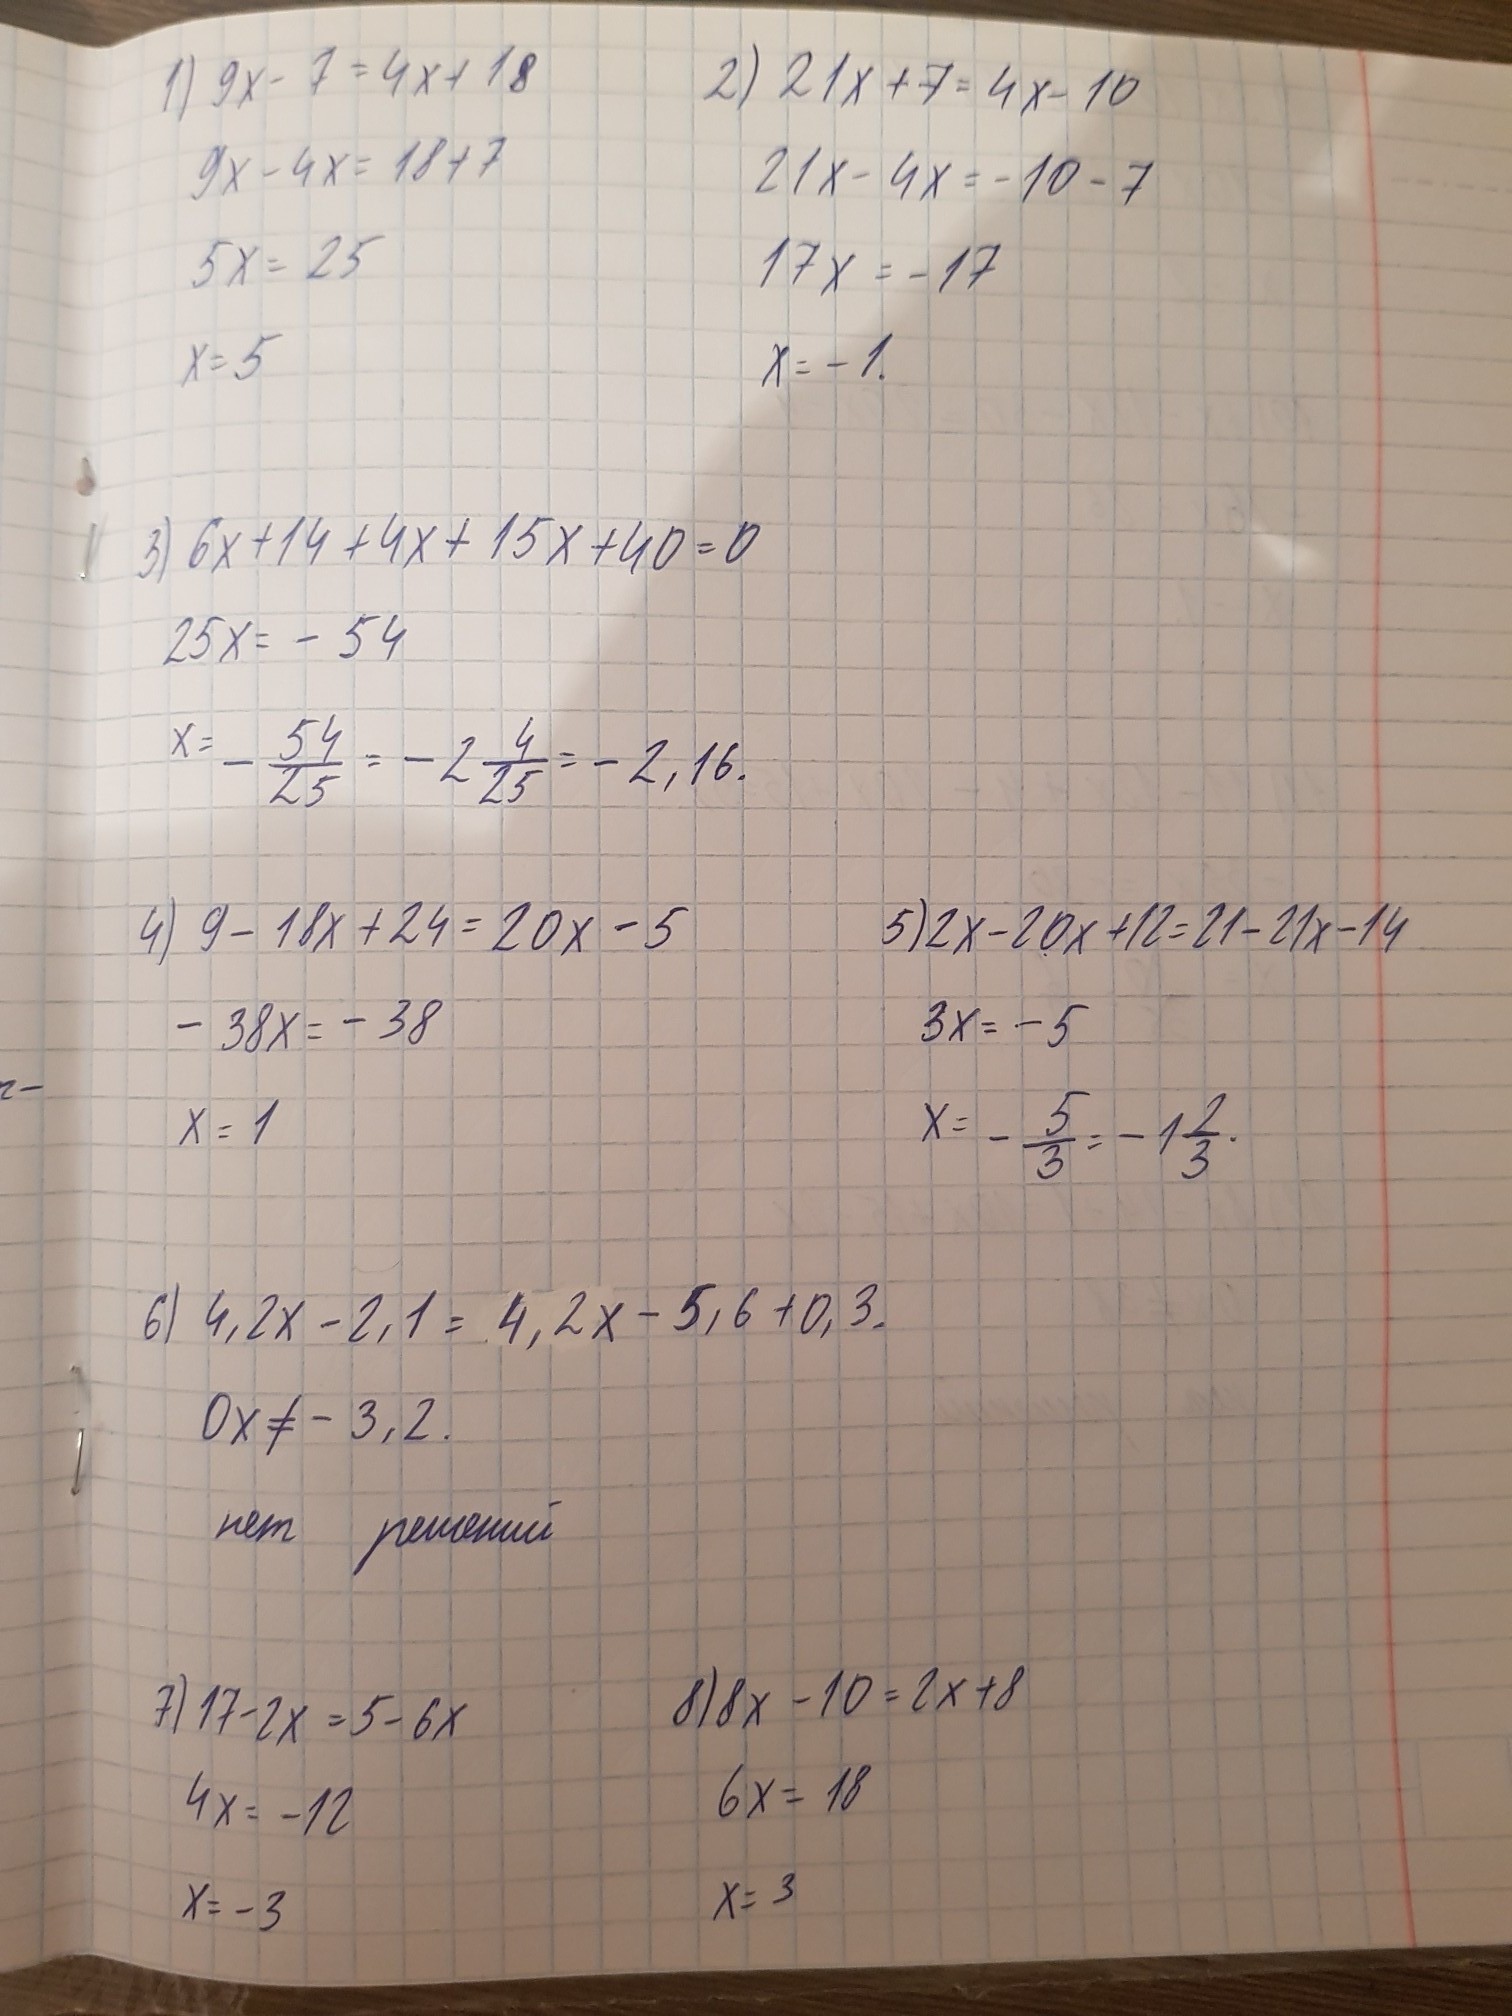 1) 9x - 7 = 4x + 18
9x - 4x = 18 + 7
5x = 25
x = 5
2) 21x + 7 = 4x - 10
21x - 4x = -10 - 7
17x = -17
x = -1.
3) 6x + 14 + 4x + 15x + 40 = 0
25x = -54
x = -54/25 = -2 4/25 = -2,16.
4) 9 - 18x + 24 = 20x - 5
-38x = -38
x = 1
5) 2x - 20x + 12 = 21 - 21x - 14
3x = -5
x = -5/3 = -1 2/3.
6) 4,2x - 2,1 = 4,2x - 5,6 + 0,3.
0x ≠ -3,2.
нет решений
7) 17 - 2x = 5 - 6x
4x = -12
x = -3
8) 8x - 10 = 2x + 8
6x = 18
x = 3